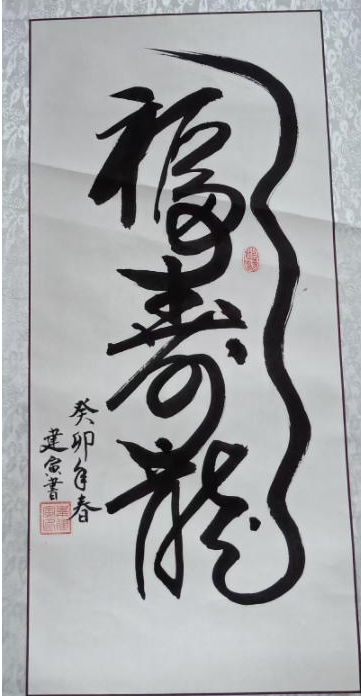 福寿龍
癸卯年春
建寅書